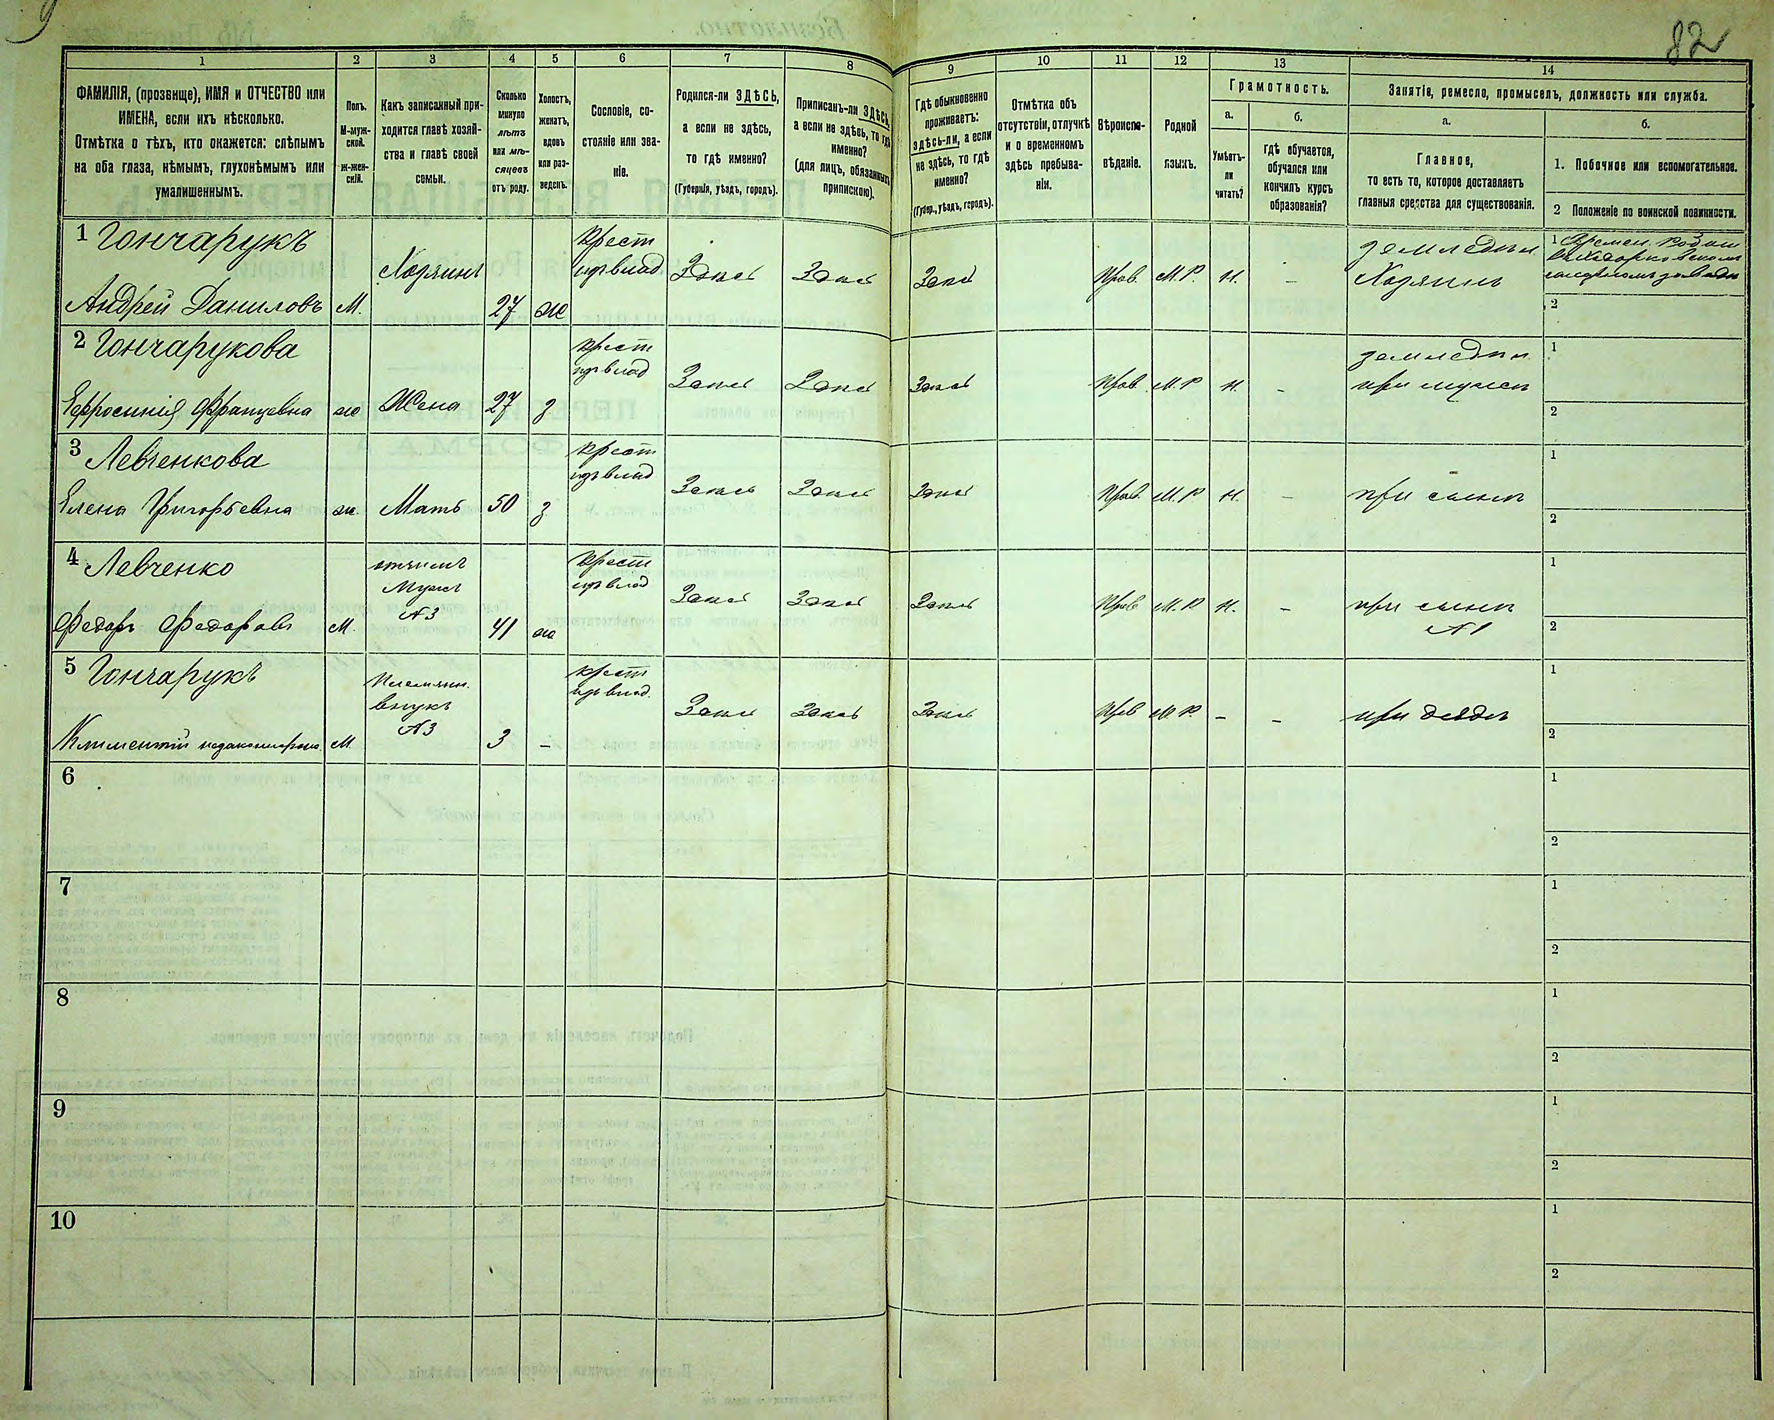 82
1 2 3 4 5 6 7 8 9 10 11 12 13 14
ФАМИЛІЯ, (прозвище), ИМЯ и ОТЧЕСТВО или
ИМЕНА, если ихъ нѣсколько.
Отмѣтка о тѣхъ, кто окажется: слѣпымъ
на оба глаза, нѣмымъ, глухонѣмымъ или
умалишеннымъ.
Полъ.
М-муж-
ской.
Ж-жен-
скій.
Какъ записанный при-
ходится главѣ хозяй-
ства и главѣ своей
семьи.
Сколько
минуло
лѣтъ
или мѣ-
сяцевъ
отъ роду.
Холостъ,
женатъ,
вдовъ
или раз-
веденъ.
Сословіе, со-
стояніе или зва-
ніе.
Родился-ли ЗДѢСЬ,
а если не здѣсь,
то гдѣ именно?
(Губернія, уѣздъ, городъ).
Приписанъ-ли ЗДѢСЬ,
а если не здѣсь, то гдѣ
именно?
(для лицъ, обязанныхъ
припискою).
Гдѣ обыкновенно
проживаетъ:
здѣсь-ли, а если
не здѣсь, то гдѣ
именно?
(Губер., уѣздъ, городъ).
Отмѣтка объ
отсутствіи, отлучкѣ
и о временномъ
здѣсь пребыва-
ніи.
Вѣроиспо-
вѣданіе.
Родной
языкъ.
Грамотность.
а.
Умѣетъ-
ли
читать?
б.
гдѣ обучается,
обучался или
кончилъ курсъ
образованія?
Занятіе, ремесло, промыселъ, должность или служба.
а.
Главное,
то есть то, которое доставляетъ
главныя средства для существованія.
б.
1. Побочное или вспомогательное.
2 Положеніе по воинской повинности.
1 Гончарукъ
Андрей Даниловъ М. Хозяинъ 27 ж
Крест
изъ влад Здѣсь Здѣсь Здѣсь Прав. М.Р. Н. –
земледѣл
Хозяинъ
1
2
2 Гончарукова
Ефросинія Францевна ж Жена 27 з
Крест
изъ влад Здѣсь Здѣсь Здѣсь Прав. М.Р Н. –
земледѣл
при мужѣ
1
2
3 Левченкова
Елена Григорьевна ж. Мать 50 з
Крест
изъ влад Здѣсь Здѣсь Здѣсь Прав. М.Р Н. –
при сынѣ
1
2
4 Левченко
Федоръ Федоровъ М.
отчимъ
Мужъ
№3
41 ж
Крест
изъ влад Здѣсь Здѣсь Здѣсь Прав М.Р Н. –
при сынѣ
№1
1
2
5 Гончарукъ
Климентій М
внукъ
№3
3 –
Крест
изъ влад. Здѣсь Здѣсь Здѣсь Прв М.Р. – –
при дядѣ
1
2
6
1
2
7
1
2
8
1
2
9
1
2
10
1
2